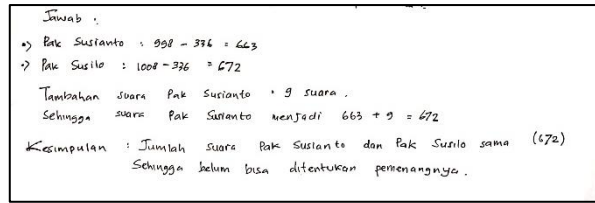 Jawab :
•) Pak Susianto : 998 - 336 = 663
•) Pak Susilo : 1008 - 336 = 672
Tambahan suara Pak Susianto = 9 suara.
Sehingga suara Pak Susianto menjadi 663 + 9 = 672
Kesimpulan : Jumlah suara Pak Susianto dan Pak Susilo sama (672)
Sehingga belum bisa ditentukan pemenangnya.